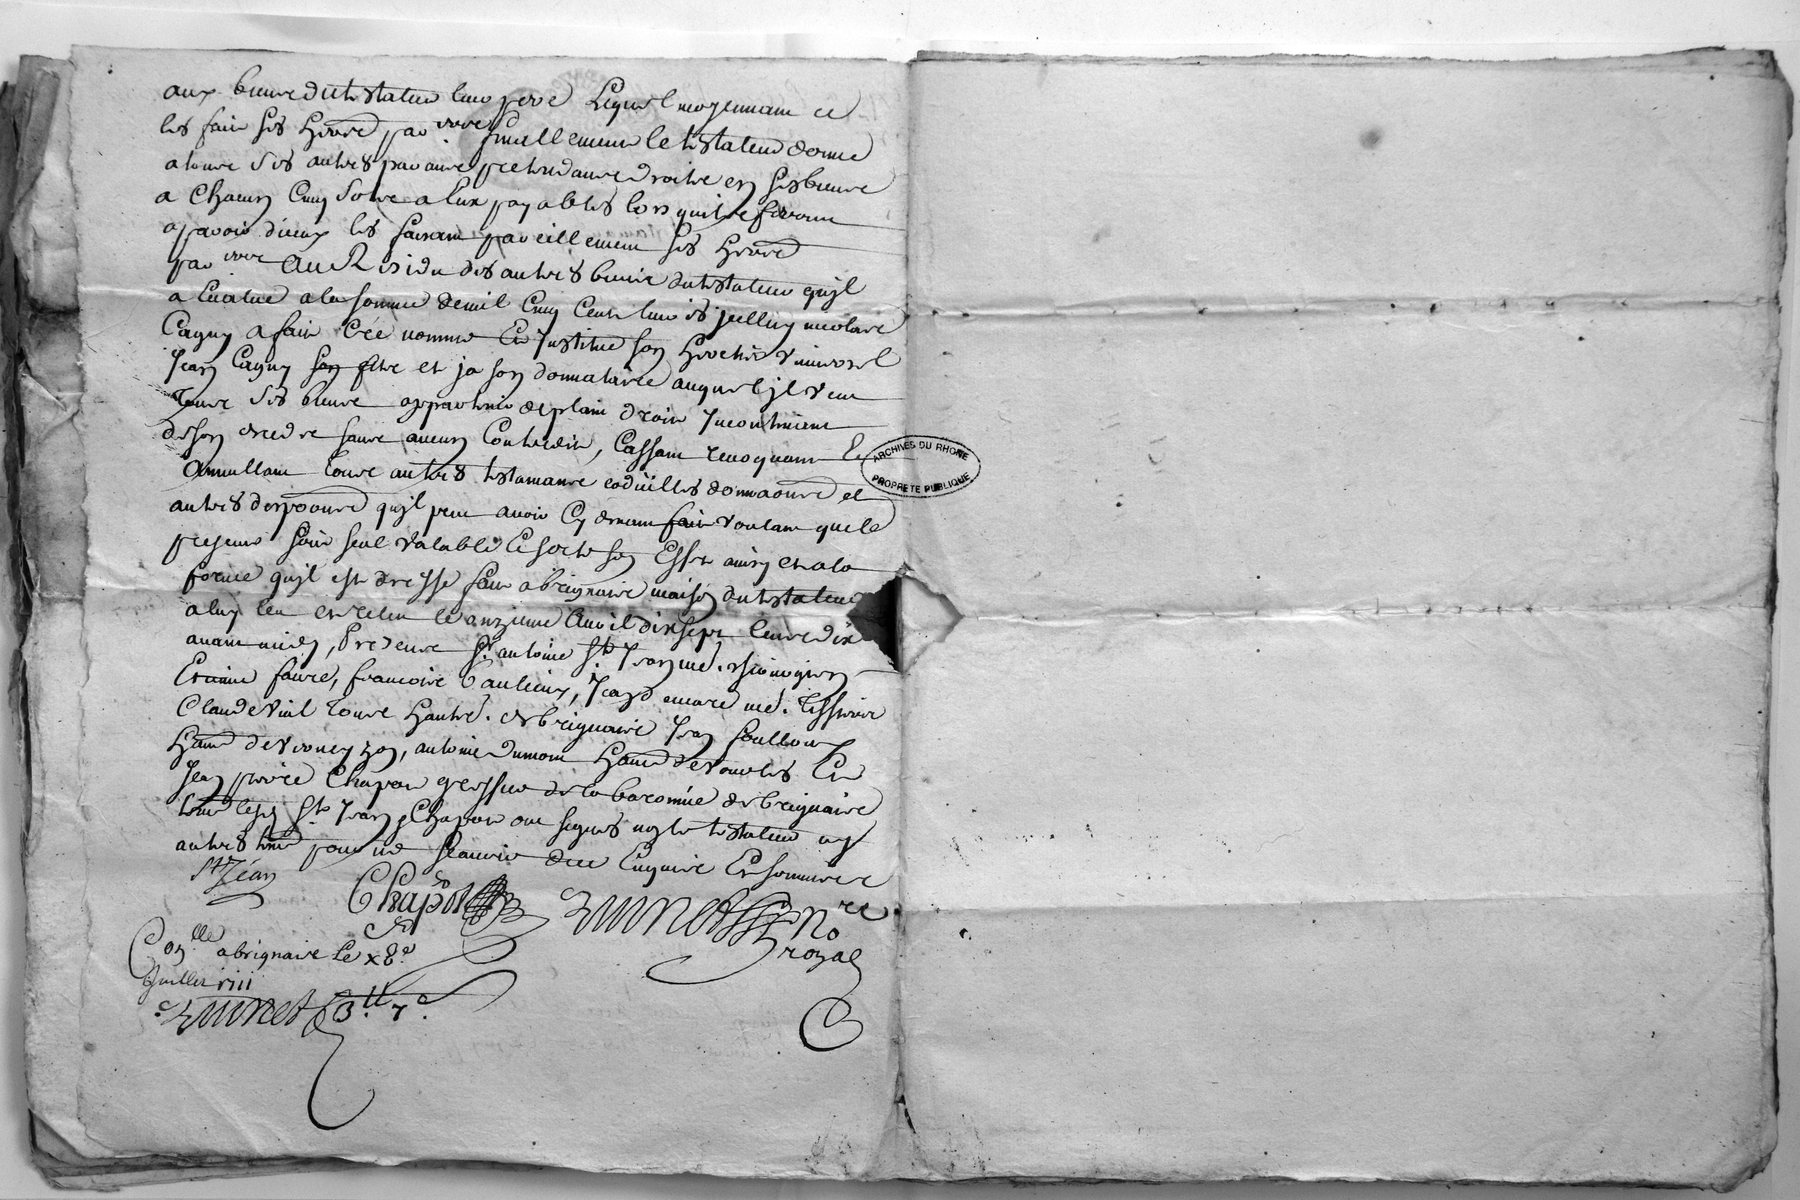 aux biens du testateur leur pere Lequel moyennant ce
les fait ses heret par icelle Finallement le testateur donne
a tous ses autres parans pretendans droits en ses biens
a Chacun Cinq Sols a Eux payables lors quils feront
aparoir diceux les faisant pareillement ses heret
par icelle Au Residu des autres biens du testateur quil
a Evalue a la somme de mil Cinq Cent livres jcelluy nicolas
Cagny a fait Cree nomme Et Institue son heretier universel
Jean Cagny son et ja son donnataire auquel jl veut
Tous ses biens appartenir de plain droit Incontinent
deson decede sans aucun Contredit, Cassant revoquant Et
Annullant Tous autres testamans codicilles donnaons et
autres disposons quil peut avoir Cy devant fait voulant que le
present soit seul valable Et sorte son Effet ainsy et a la
forme quil est dresse fait a brignais maison du testateur
a luy leu et releu le onzieme Avril dix sept Cents dix
avant midy, Presents Sr antoine St Jean me. chirurgien
Etienne faure, francois, Jean me. Tissier
Claude Vial Tous habts. de brignais Jean
habt de, antoine Dumont habt de Vourles Et
Jean pierre Chapot greffier de la baronnie de brignais
tem lesd St Jean & Chapot ont signes non le testateur ny
autres tem pour ne scavoir de ce Enquis Et sommes
St Jean
Chapot
no re
royal
Con lle a brignais Le
Juillet
3 ll 7
ARCHIVES DU RHONE
PROPRIETE PUBLIQUE